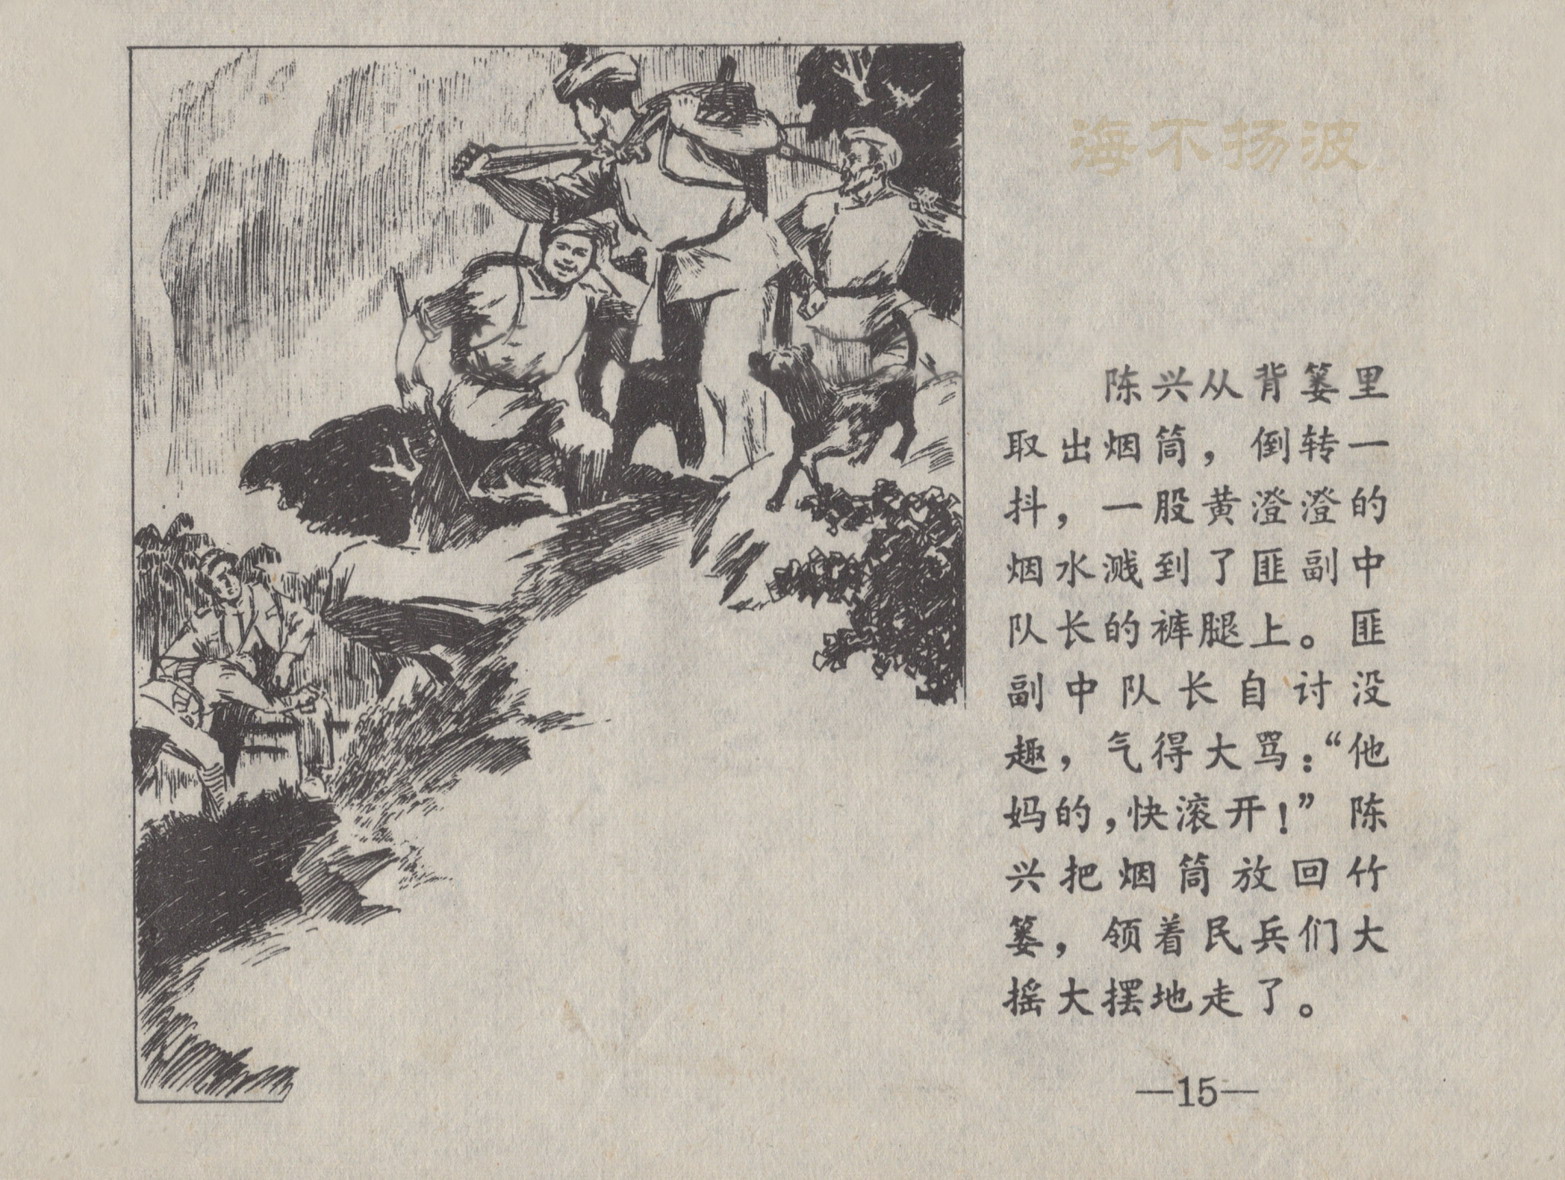 海不扬波
陈兴从背篓里
取出烟筒，倒转一
抖，一股黄澄澄的
烟水溅到了匪副中
队长的裤腿上。匪
副中队长自讨没
趣，气得大骂：“他
妈的，快滚开！”陈
兴把烟筒放回竹
篓，领着民兵们大
摇大摆地走了。
—15—